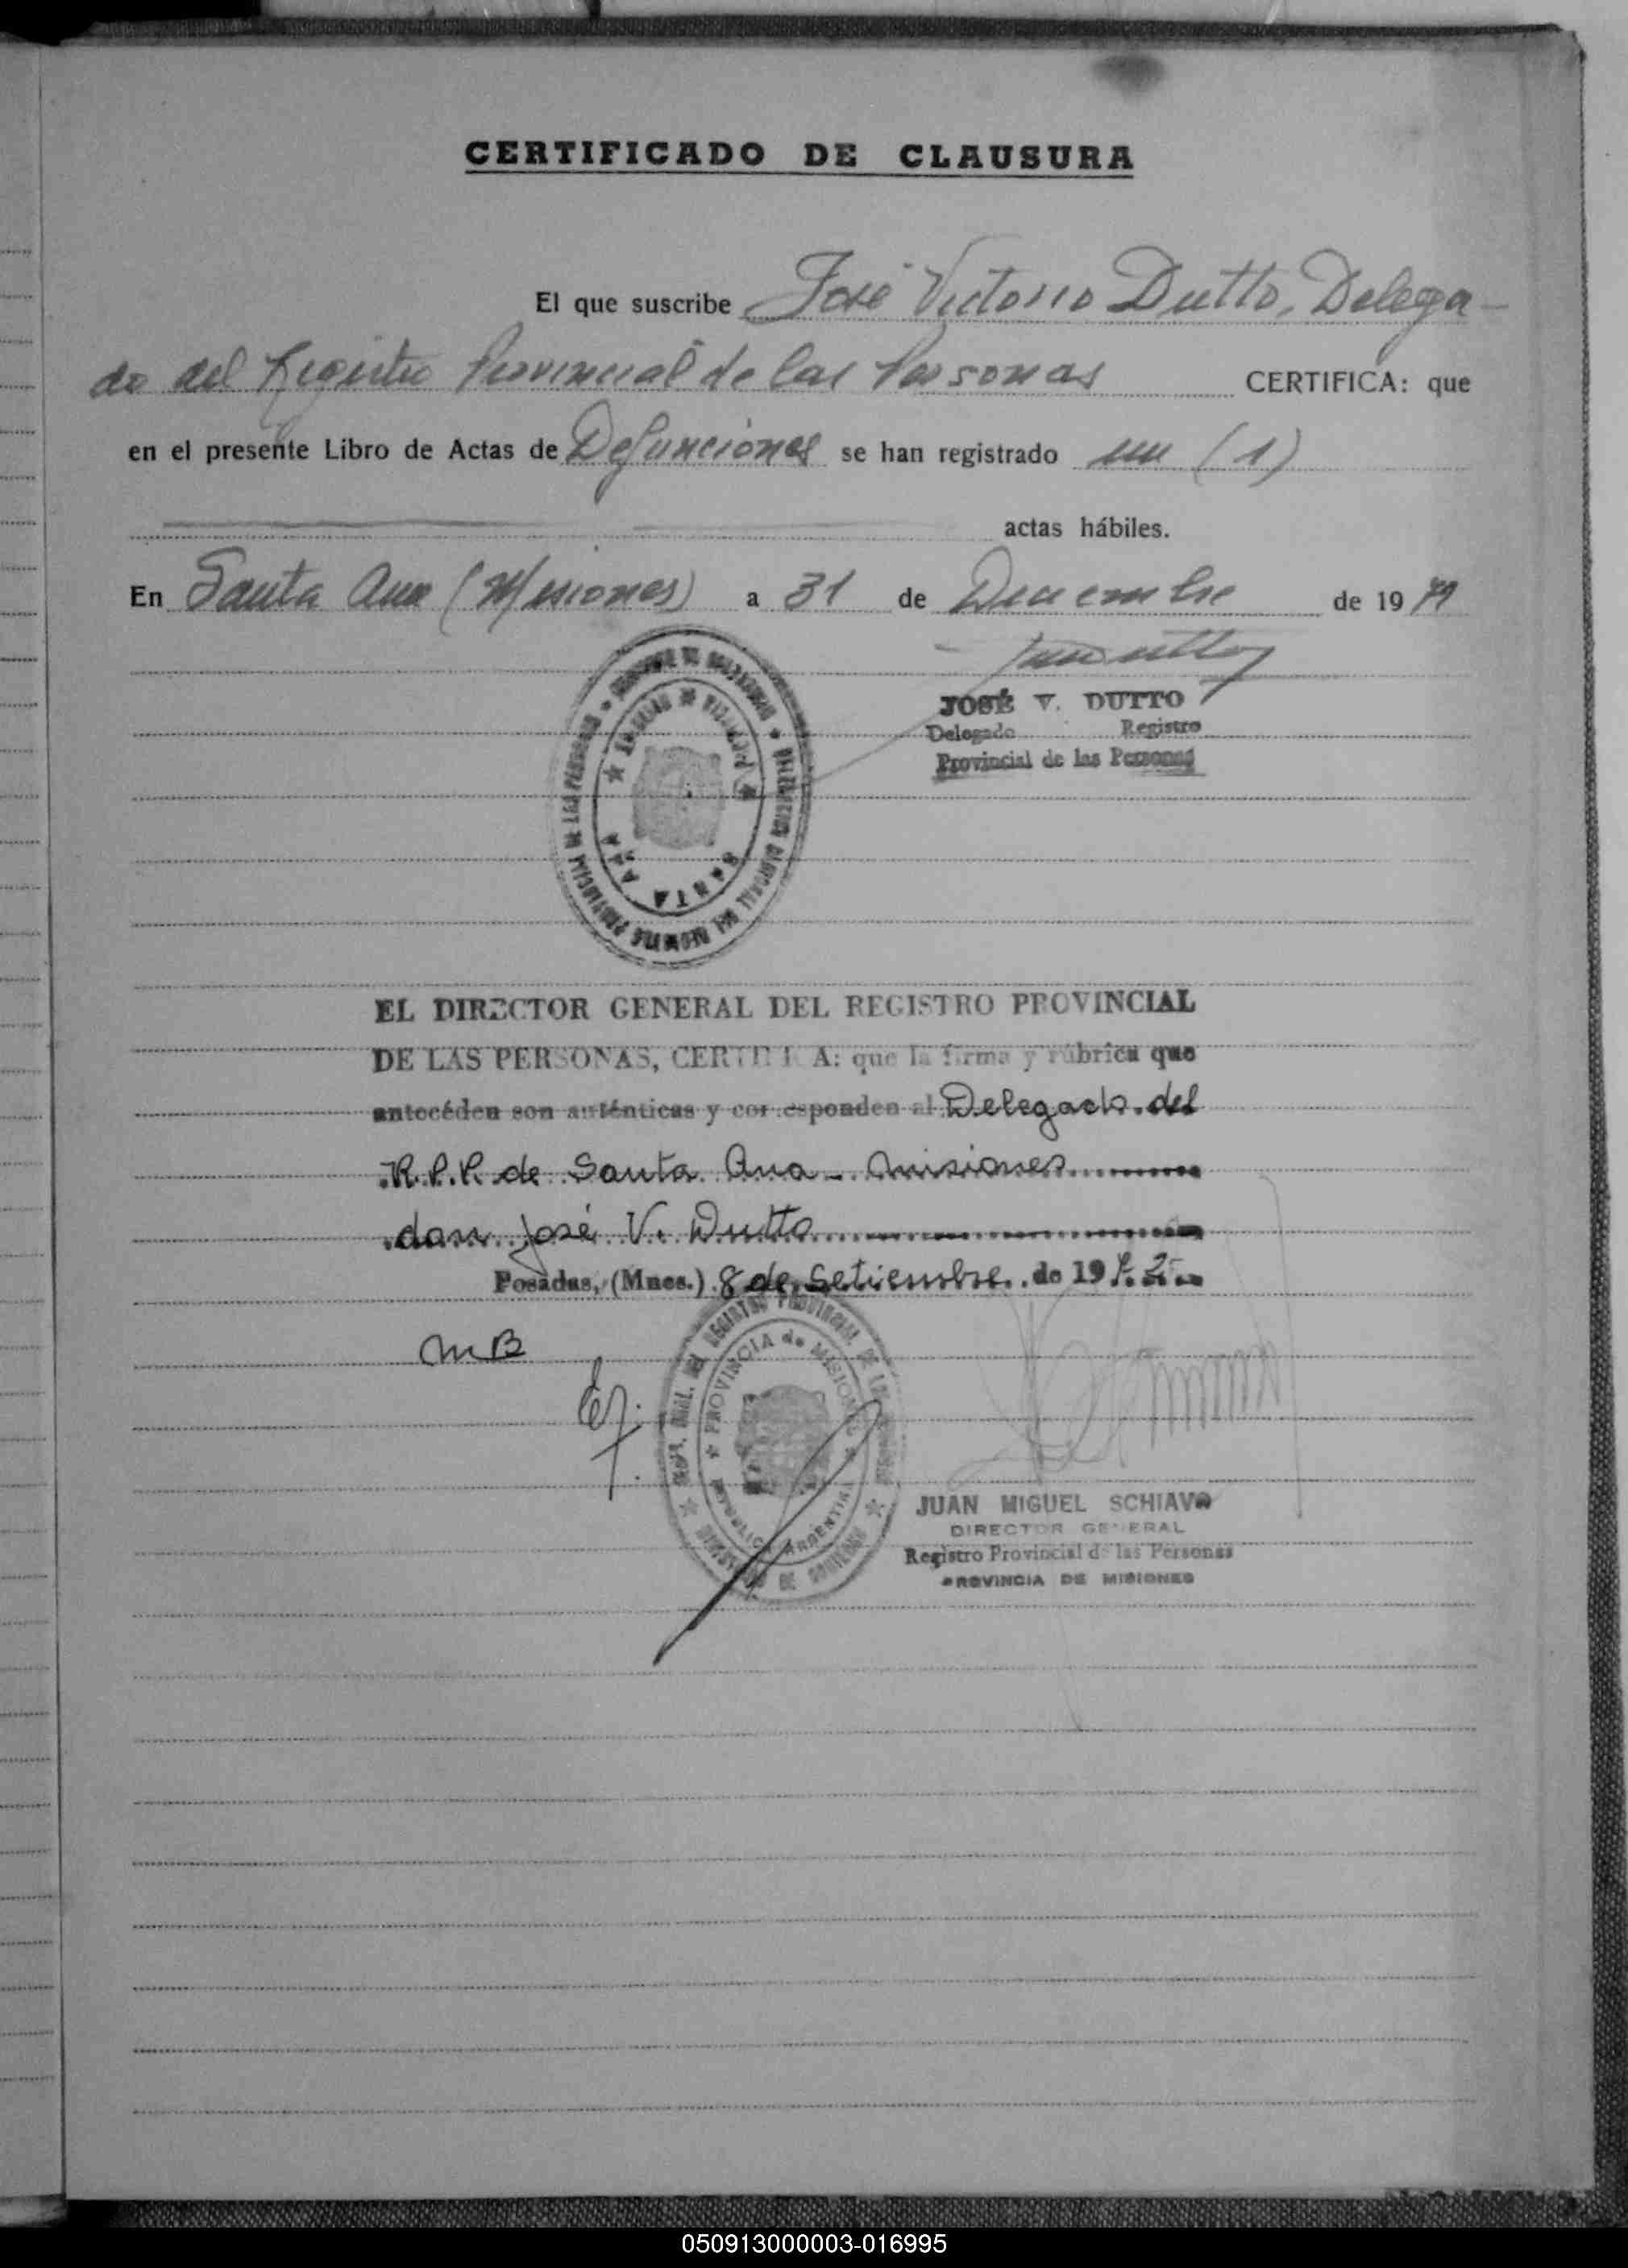 CERTIFICADO DE CLAUSURA
El que suscribe José Victorio Dutto, Delega-
do del Registro Provincial de las Personas CERTIFICA: que
en el presente Libro de Actas de Defunciones se han registrado un (1)
actas hábiles.
En Santa Ana (Misiones) a 31 de Diciembre de 1979
JOSÉ V. DUTTO
Delegado Registro
Provincial de las Personas
PROVINCIAL DE LAS PERSONAS
SANTA ANA
EL DIRECTOR GENERAL DEL REGISTRO PROVINCIAL
DE LAS PERSONAS, CERTIFICA: que la firma y rúbrica que
antecéden son auténticas y corresponden al Delegado del
R.P.P. de Santa Ana - Misiones
don José V. Dutto
Posadas, (Mnes.) 8 de Setiembre de 19
MB
REGISTRO PROVINCIAL DE LAS
PROVINCIA de MISIONES
REPUBLICA ARGENTINA
JUAN MIGUEL SCHIAVO
DIRECTOR GENERAL
Registro Provincial de las Personas
PROVINCIA DE MISIONES
050913000003-016995